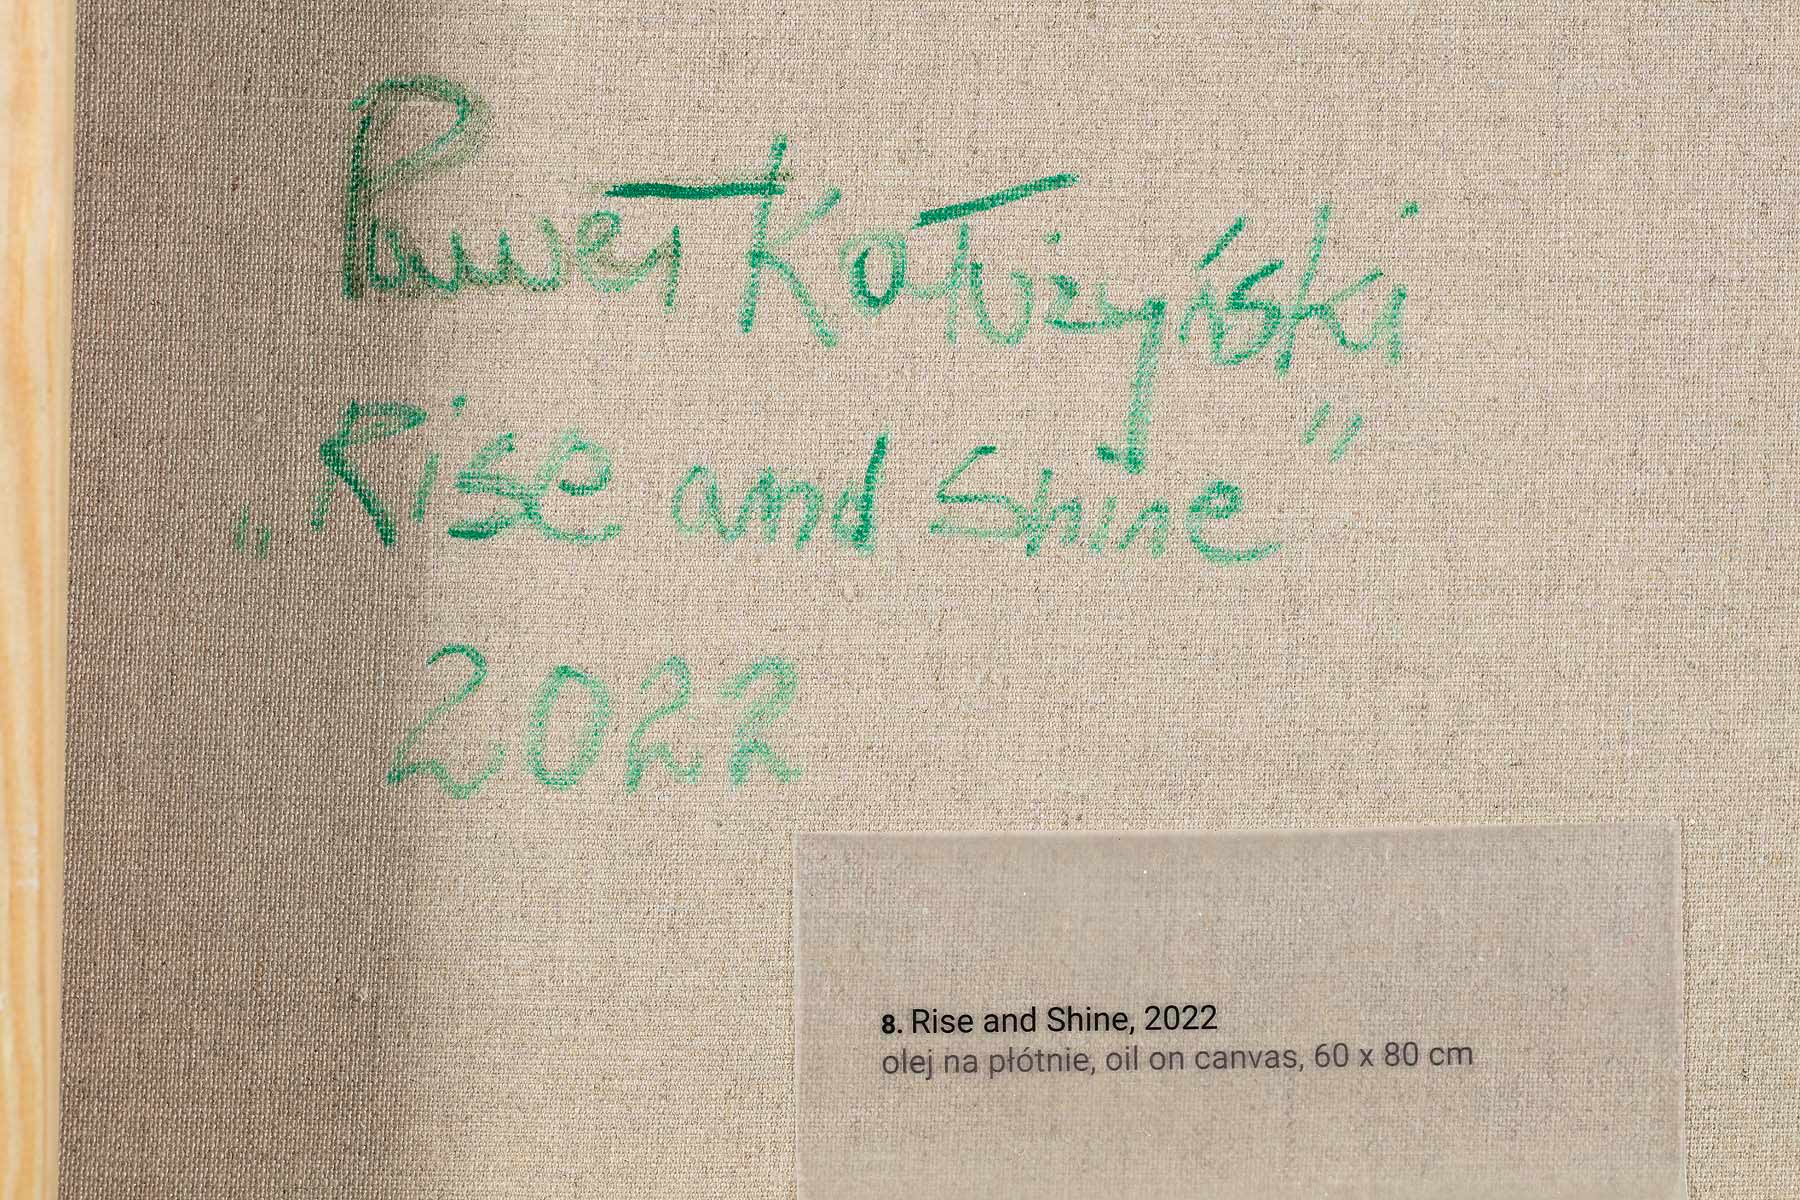 Paweł Kałużyński
„Rise and Shine”
2022
8. Rise and Shine, 2022
olej na płótnie, oil on canvas, 60 x 80 cm